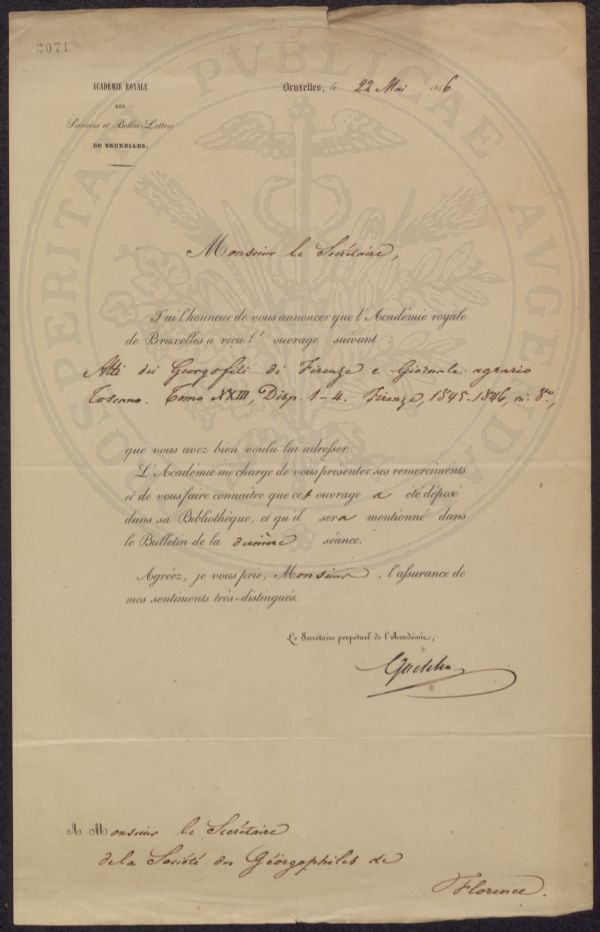 2071
ACADÉMIE ROYALE
DES
Sciences et Belles-Lettres
DE BRUXELLES.
Bruxelles, le 22 Mai 1846.
PROSPERITATI PUBLICAE AUGENDAE
Monsieur le Secrétaire,
J'ai l'honneur de vous annoncer que l'Académie royale
de Bruxelles a reçu l' ouvrage suivant :
Atti dei Georgofili di Firenze e Giornale agrario
Toscano. Tomo XXIII, Disp. 1-4. Firenze, 1845-1846, in 8º,
que vous avez bien voulu lui adresser.
L'Académie me charge de vous présenter ses remercîments
et de vous faire connaître que cet ouvrage a été déposé
dans sa Bibliothèque, et qu'il sera mentionné dans
le Bulletin de la dernière séance.
Agréez, je vous prie, Monsieur, l'assurance de
mes sentiments très-distingués.
Le Secrétaire perpétuel de l'Académie,
Quetelet
A Monsieur le Secrétaire
de la Société des Géorgophiles de
Florence.